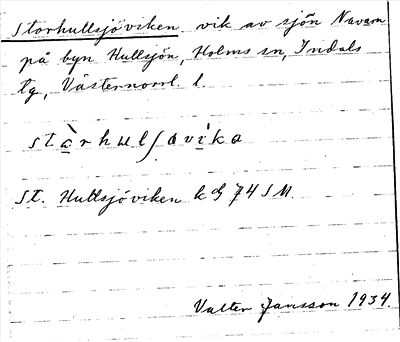 Storhullsjöviken vik av sjön Navarn
på byn Hullsjön, Holms sn, Indals
tg, Västernorrl. l.
stàrhulʃøvi̱ka
St. Hullsjöviken k G 74 SM.
Valter Jansson 1934.